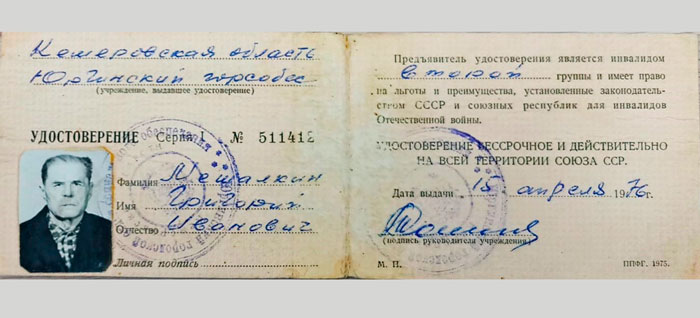 Кемеровская область
Юргинский горсобес
(учреждение, выдавшее удостоверение)
УДОСТОВЕРЕНИЕ Серия 1 № 511412
Фамилия Мешалкин
Имя Григорий
Отчество Иванович
Личная подпись
Предъявитель удостоверения является инвалидом
второй группы и имеет право
на льготы и преимущества, установленные законодатель-
ством СССР и союзных республик для инвалидов
Отечественной войны.
УДОСТОВЕРЕНИЕ БЕССРОЧНОЕ И ДЕЙСТВИТЕЛЬНО
НА ВСЕЙ ТЕРРИТОРИИ СОЮЗА ССР.
Дата выдачи 15 апреля 1976 г.
(подпись руководителя учреждения)
М. П.
ППФГ. 1975.